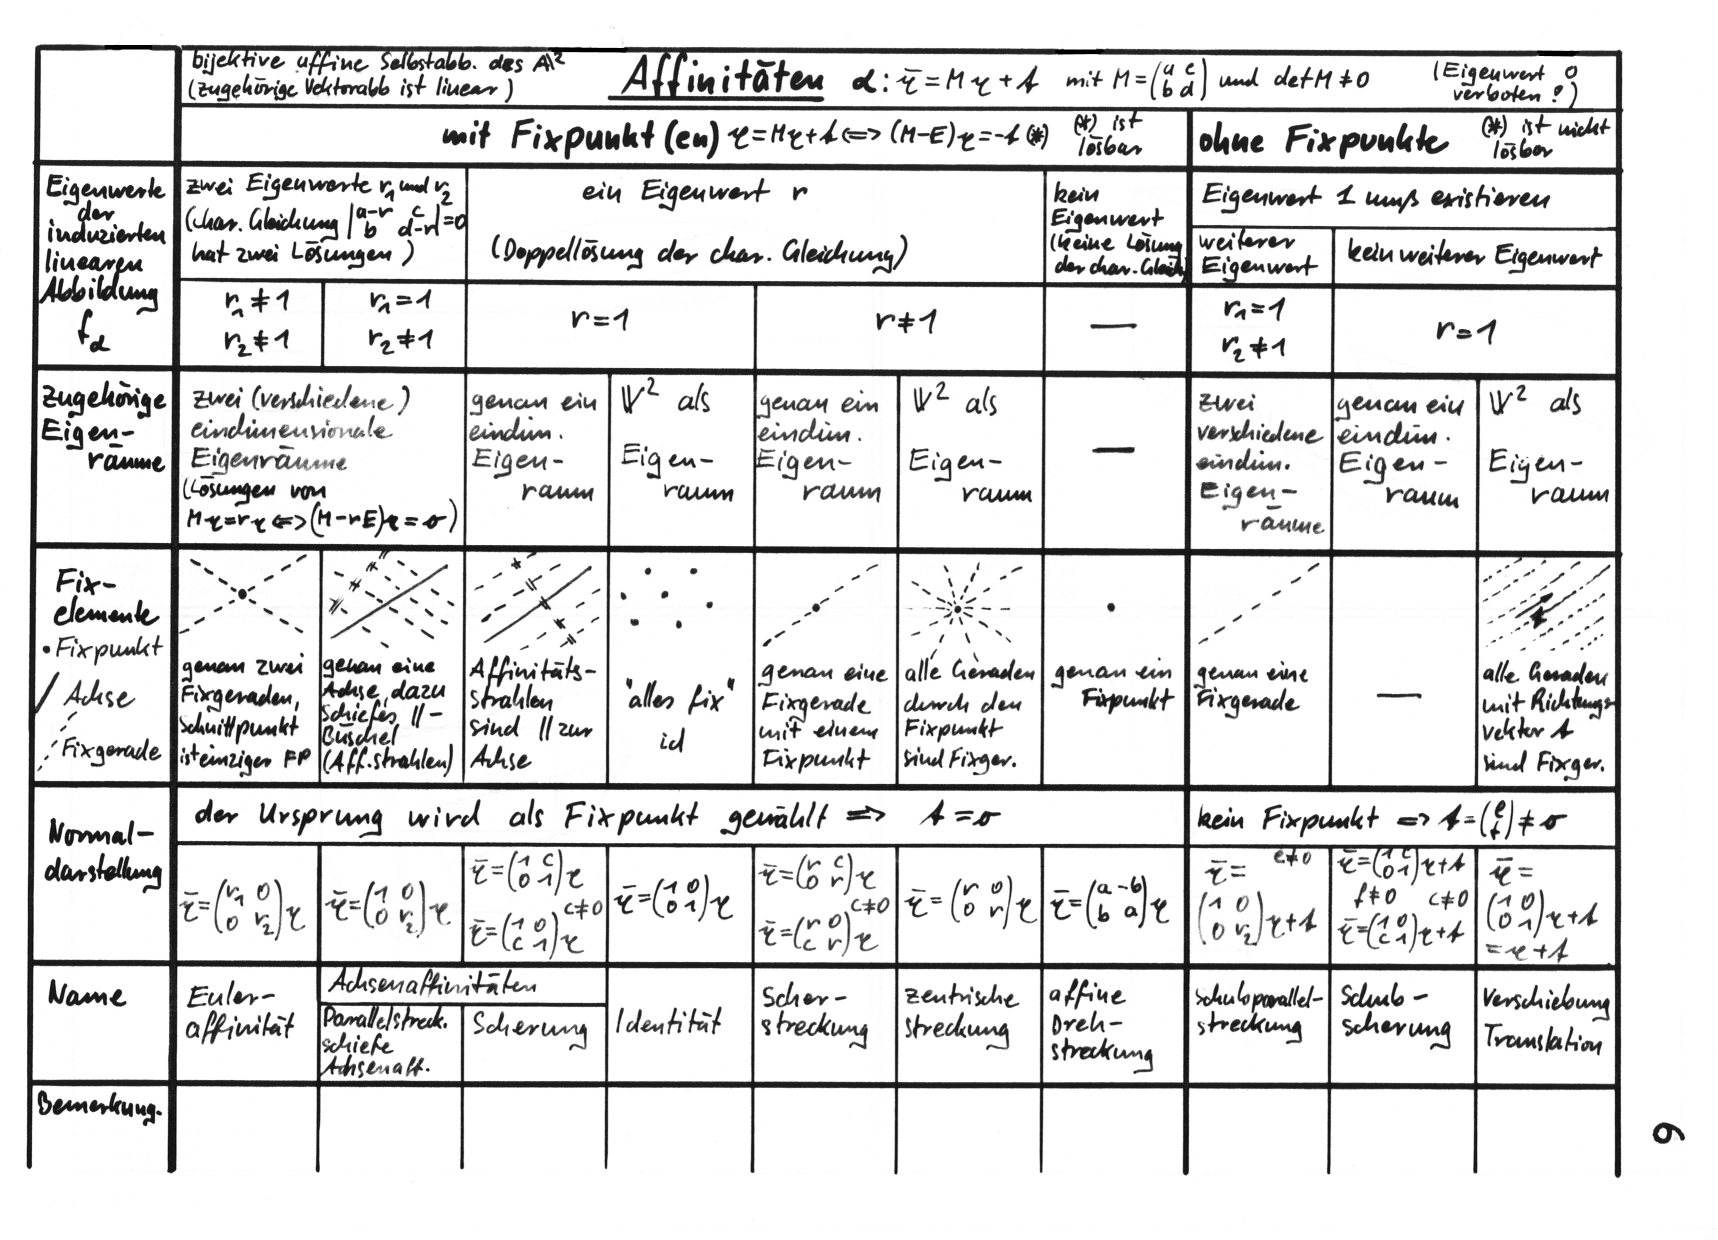 bijektive affine Selbstabb. des A²
(zugehörige Vektorabb ist linear)
Affinitäten α: x̄ = Mx + t mit M = (a c / b d) und det M ≠ 0
(Eigenwert 0 verboten!)
mit Fixpunkt(en) x = Mx + t ⟺ (M-E)x = -t (*) (*) ist lösbar
ohne Fixpunkte (*) ist nicht lösbar
Eigenwerte
der
induzierten
linearen
Abbildung
f_α
zwei Eigenwerte r₁ und r₂
(char. Gleichung |a-r c / b d-r| = 0
hat zwei Lösungen)
ein Eigenwert r
(Doppellösung der char. Gleichung)
kein
Eigenwert
(keine Lösung
der char. Gleich.)
Eigenwert 1 muß existieren
weiterer
Eigenwert
kein weiterer Eigenwert
r₁ ≠ 1
r₂ ≠ 1
r₁ = 1
r₂ ≠ 1
r = 1
r ≠ 1
—
r₁ = 1
r₂ ≠ 1
r = 1
Zugehörige
Eigen-
räume
zwei (verschiedene)
eindimensionale
Eigenräume
(Lösungen von
Mx = rx ⟺ (M-rE)x = o)
genau ein
eindim.
Eigen-
raum
V² als
Eigen-
raum
genau ein
eindim.
Eigen-
raum
V² als
Eigen-
raum
—
zwei
verschiedene
eindim.
Eigen-
räume
genau ein
eindim.
Eigen-
raum
V² als
Eigen-
raum
Fix-
elemente
• Fixpunkt
/ Achse
Fixgerade
genau zwei
Fixgeraden,
Schnittpunkt
ist einziger FP
genau eine
Achse, dazu
schiefes ||-
Büschel
(Aff.strahlen)
Affinitäts-
strahlen
sind || zur
Achse
"alles fix"
id
genau eine
Fixgerade
mit einem
Fixpunkt
alle Geraden
durch den
Fixpunkt
sind Fixger.
genau ein
Fixpunkt
genau eine
Fixgerade
—
alle Geraden
mit Richtungs-
vektor t
sind Fixger.
Normal-
darstellung
der Ursprung wird als Fixpunkt gewählt ⇒ t = o
kein Fixpunkt ⇒ t = (e / f) ≠ o
x̄ = (r₁ 0 / 0 r₂) x
x̄ = (1 0 / 0 r₂) x
x̄ = (1 c / 0 1) x
c ≠ 0
x̄ = (1 0 / c 1) x
x̄ = (1 0 / 0 1) x
x̄ = (r c / 0 r) x
c ≠ 0
x̄ = (r 0 / c r) x
x̄ = (r 0 / 0 r) x
x̄ = (a -b / b a) x
x̄ = e ≠ 0
(1 0 / 0 r₂) x + t
x̄ = (1 c / 0 1) x + t
f ≠ 0 c ≠ 0
x̄ = (1 0 / c 1) x + t
x̄ =
(1 0 / 0 1) x + t
= x + t
Name
Euler-
affinität
Achsenaffinitäten
Parallelstreck.
schiefe
Achsenaff.
Scherung
Identität
Scher-
streckung
zentrische
streckung
affine
Dreh-
streckung
Schubparallel-
streckung
Schub-
scherung
Verschiebung
Translation
Bemerkung.
6